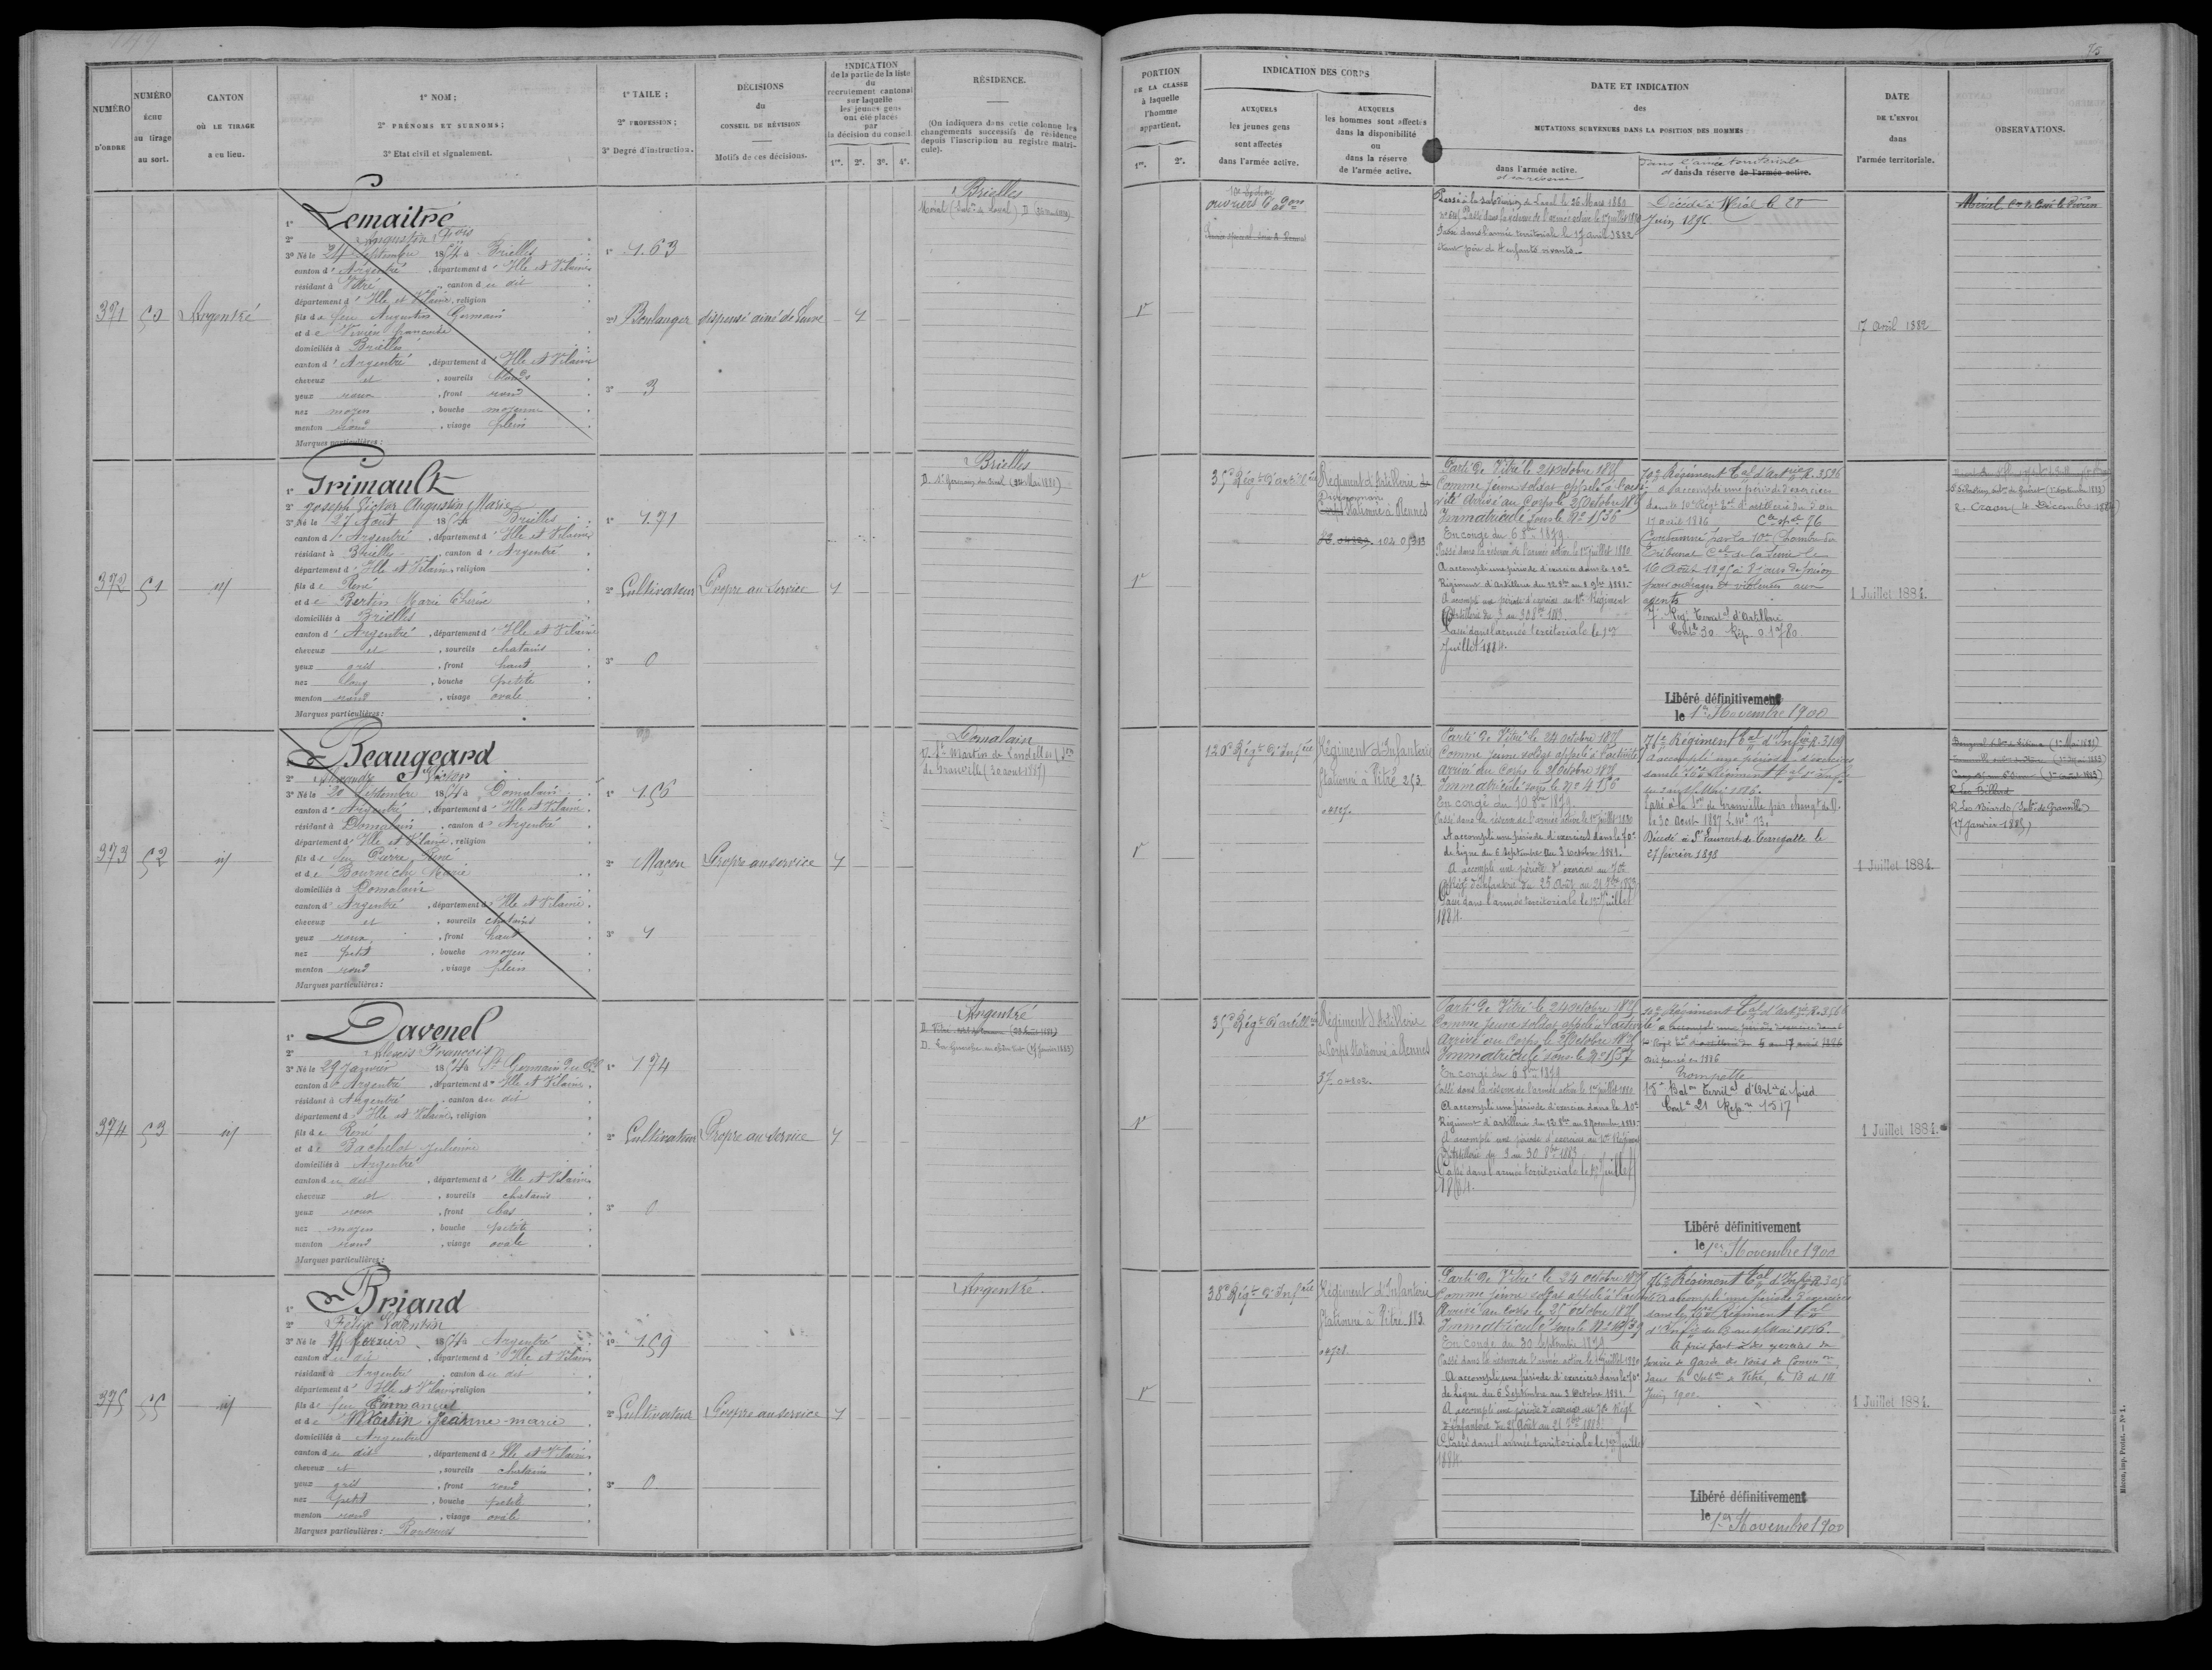 75
NUMÉRO
D'ORDRE
NUMÉRO
ÉCHU
au tirage
au sort.
CANTON
OÙ LE TIRAGE
a eu lieu.
1° NOM ;
2° PRÉNOMS ET SURNOMS ;
3° Etat civil et signalement.
1° TAILE ;
2° PROFESSION ;
3° Degré d'instruction.
DÉCISIONS
du
CONSEIL DE RÉVISION
Motifs de ces décisions.
INDICATION
de la partie de la liste
du
recrutement cantonal
sur laquelle
les jeunes gens
ont été placés
par
la décision du conseil.
1re. 2e. 3e. 4e.
RÉSIDENCE.
(On indiquera dans cette colonne les
changements successifs de résidence
depuis l'inscription au registre matri-
cule).
PORTION
DE LA CLASSE
à laquelle
l'homme
appartient.
1re. 2e.
INDICATION DES CORPS
AUXQUELS
les jeunes gens
sont affectés
dans l'armée active.
AUXQUELS
les hommes sont affectés
dans la disponibilité
ou
dans la réserve
de l'armée active.
DATE ET INDICATION
des
MUTATIONS SURVENUES DANS LA POSITION DES HOMMES
dans l'armée active.
et en réserve
Dans l'armée territoriale
et dans la réserve de l'armée active.
DATE
DE L'ENVOI
dans
l'armée territoriale.
OBSERVATIONS.
371
50
Argentré
1° Lemaitre
2° Augustin Fois
3° Né le 24 Septembre 1854 à Brielles
canton d'Argentré, département d'Ille et Vilaine
résidant à Vitré, canton du dit
département d'Ille et Vilaine, religion
fils de feu Augustin Germain
et de françoise
domiciliés à Brielles
canton d'Argentré, département d'Ille et Vilaine
cheveux et, sourcils blonds
yeux roux, front rond
nez moyen, bouche moyenne
menton rond, visage plein
Marques particulières :
1° 1.63
2° Boulanger
3° 3
dispensé ainé de Veuve
1
Brielles
1re
ouvriers
Passé à la subdivision de Laval le 26 Mars 1880
Passé dans la réserve de l'armée active le 1er juillet 1880
Passé dans l'armée territoriale le 17 avril 1882
étant père de 4 enfants vivants
Décédé à Méral le 28
Juin 1896
17 avril 1882
372
51
id
1° Grimault
2° Joseph Victor Augustin Marie
3° Né le 27 Août 1854 à Brielles
canton d'Argentré, département d'Ille et Vilaine
résidant à Brielles, canton d'Argentré
département d'Ille et Vilaine, religion
fils de René
et de Bertin Marie Thérèse
domiciliés à Brielles
canton d'Argentré, département d'Ille et Vilaine
cheveux et, sourcils chatains
yeux gris, front haut
nez long, bouche petite
menton rond, visage ovale
Marques particulières :
1° 1.71
2° Cultivateur
3° 0
Propre au service
1
Brielles
1re
35e Régt d'artillerie
Régiment d'Artillerie
Divisionnaire
Stationné à Rennes
Parti de Vitré le 24 octobre 1875
Comme jeune soldat appelé à l'acti-
vité Arrivé au Corps le 25 octobre 1875
Immatriculé sous le No 1536
En congé du 6 8bre 1879
Passé dans la réserve de l'armée active le 1er juillet 1880
A accompli une période d'exercices dans le 10e
Régiment d'Artillerie du 12 8bre au 8 9bre 1881.
A accompli une période d'exercices au 10e Régiment
d'Artillerie du 3 au 30 8bre 1883.
Passé dans l'armée territoriale le 1er
Juillet 1884.
10e Régiment Tal d'Artrie R. 3596
a accompli une période d'exercices
dans le 10e Régt Tal d'artillerie du 5 au
17 avril 1886
Condamné par la 10e Chambre du
Tribunal Cel de la Seine le
16 Août 1895 à 8 jours de prison
pour outrages et violences aux
agents
7e Rég. Territal d'Artillerie
Contle 30 Rép. 0.1780
Libéré définitivement
le 1er Novembre 1900
1 Juillet 1884.
R. Craon (4 Décembre 1884)
373
52
id
1° Beaugeard
2° Alexandre Victor
3° Né le 20 Septembre 1854 à Domalain
canton d'Argentré, département d'Ille et Vilaine
résidant à Domalain, canton d'Argentré
département d'Ille et Vilaine, religion
fils de feu Pierre René
et de Bourniche Marie
domiciliés à Domalain
canton d'Argentré, département d'Ille et Vilaine
cheveux et, sourcils chatains
yeux roux, front haut
nez petit, bouche moyen
menton rond, visage plein
Marques particulières :
1° 1.56
2° Maçon
3° 1
Propre au service
1
Domalain
D. St Martin de Landelles (Son
de Granville (30 août 1887)
1re
120e Régt d'Infrie
Régiment d'Infanterie
Stationné à Vitré 253
Parti de Vitré le 24 octobre 1875
Comme jeune soldat appelé à l'activité
arrivé au Corps le 25 octobre 1875
Immatriculé sous le No 4156
Passé dans la réserve de l'armée active le 1er juillet 1880
A accompli une période d'exercices dans le 70e
de ligne du 6 Septembre au 3 Octobre 1881.
A accompli une période d'exercices au 70e
Régt d'Infanterie du 25 Août au 21 7bre 1883
Passé dans l'armée territoriale le 1er Juillet
1884.
76e Régiment Tal d'Infrie R. 3109
A accompli une période d'exercices
dans le 76e Régiment Tal d'Infie
Passé à la Son de Granville par changt de D.
le 30 Août 1887
Décédé à St Laurent de Terregatte le
27 février 1898
1 Juillet 1884.
R. Les Biards (Subn de Granville)
(17 Janvier 1889)
374
53
id
1° Davenel
2° Alexis François
3° Né le 29 Janvier 1854 à St Germain du Pel
canton d'Argentré, département d'Ille et Vilaine
résidant à Argentré, canton du dit
département d'Ille et Vilaine, religion
fils de René
et de Bachelot Julienne
domiciliés à Argentré
canton du dit, département d'Ille et Vilaine
cheveux et, sourcils chatains
yeux roux, front bas
nez moyen, bouche petite
menton rond, visage ovale
Marques particulières :
1° 1.74
2° Cultivateur
3° 0
Propre au service
1
Argentré
1re
35e Régt d'artillerie
Régiment d'Artillerie
de Corps Stationné à Rennes
Parti de Vitré le 24 octobre 1875
Comme jeune soldat appelé à l'activité
Arrivé au Corps le 25 octobre 1875
Immatriculé sous le No 1537
En congé du 6 8bre 1879
Passé dans la réserve de l'armée active le 1er juillet 1880
A accompli une période d'exercices dans le 10e
Régiment d'artillerie du 12 8bre au 8 Novembre 1881.
A accompli une période d'exercices au 10e Régiment
d'Artillerie du 3 au 30 8bre 1883
Passé dans l'armée territoriale le 1er Juillet
1884.
10e Régiment Tal d'Artrie R. 3566
dispensé en 1886
Trompette
15e Baton Territal d'Artrie à pied
Contle 21 Rép. 1517
Libéré définitivement
le 1er Novembre 1900
1 Juillet 1884.
375
55
id
1° Briand
2° Félix Valentin
3° Né le 14 février 1854 à Argentré
canton du dit, département d'Ille et Vilaine
résidant à Argentré, canton du dit
département d'Ille et Vilaine, religion
fils de feu Emmanuel
et de Martin Jeanne-marie
domiciliés à Argentré
canton du dit, département d'Ille et Vilaine
cheveux et, sourcils chatains
yeux gris, front rond
nez petit, bouche petite
menton rond, visage ovale
Marques particulières : Rousseurs
1° 1.59
2° Cultivateur
3° 0
Propre au service
1
Argentré
1re
38e Régt d'Infrie
Régiment d'Infanterie
Stationné à Vitré 183
Parti de Vitré le 24 octobre 1875
Comme jeune soldat appelé à l'activité
Arrivé au Corps le 25 octobre 1875
En congé du 30 Septembre 1879
Passé dans la réserve de l'armée active le 1er juillet 1880
A accompli une période d'exercices dans le 70e
de Ligne du 6 Septembre au 3 Octobre 1881.
A accompli une période d'exercices au 70e Régt
d'Infanterie du 25 Août au 21 7bre 1883
Passé dans l'armée territoriale le 1er Juillet
1884.
76e Régiment Tal d'Infrie R. 3056
a accompli une période d'exercices
dans le 76e Régiment Tal
A pris part à des exercices du
Service de Garde des Voies de Common
dans la Subon de Vitré, les 13 et 14
Juin 1900.
Libéré définitivement
le 1er Novembre 1900
1 Juillet 1884.
Mâcon, imp. Protat. — No 1.